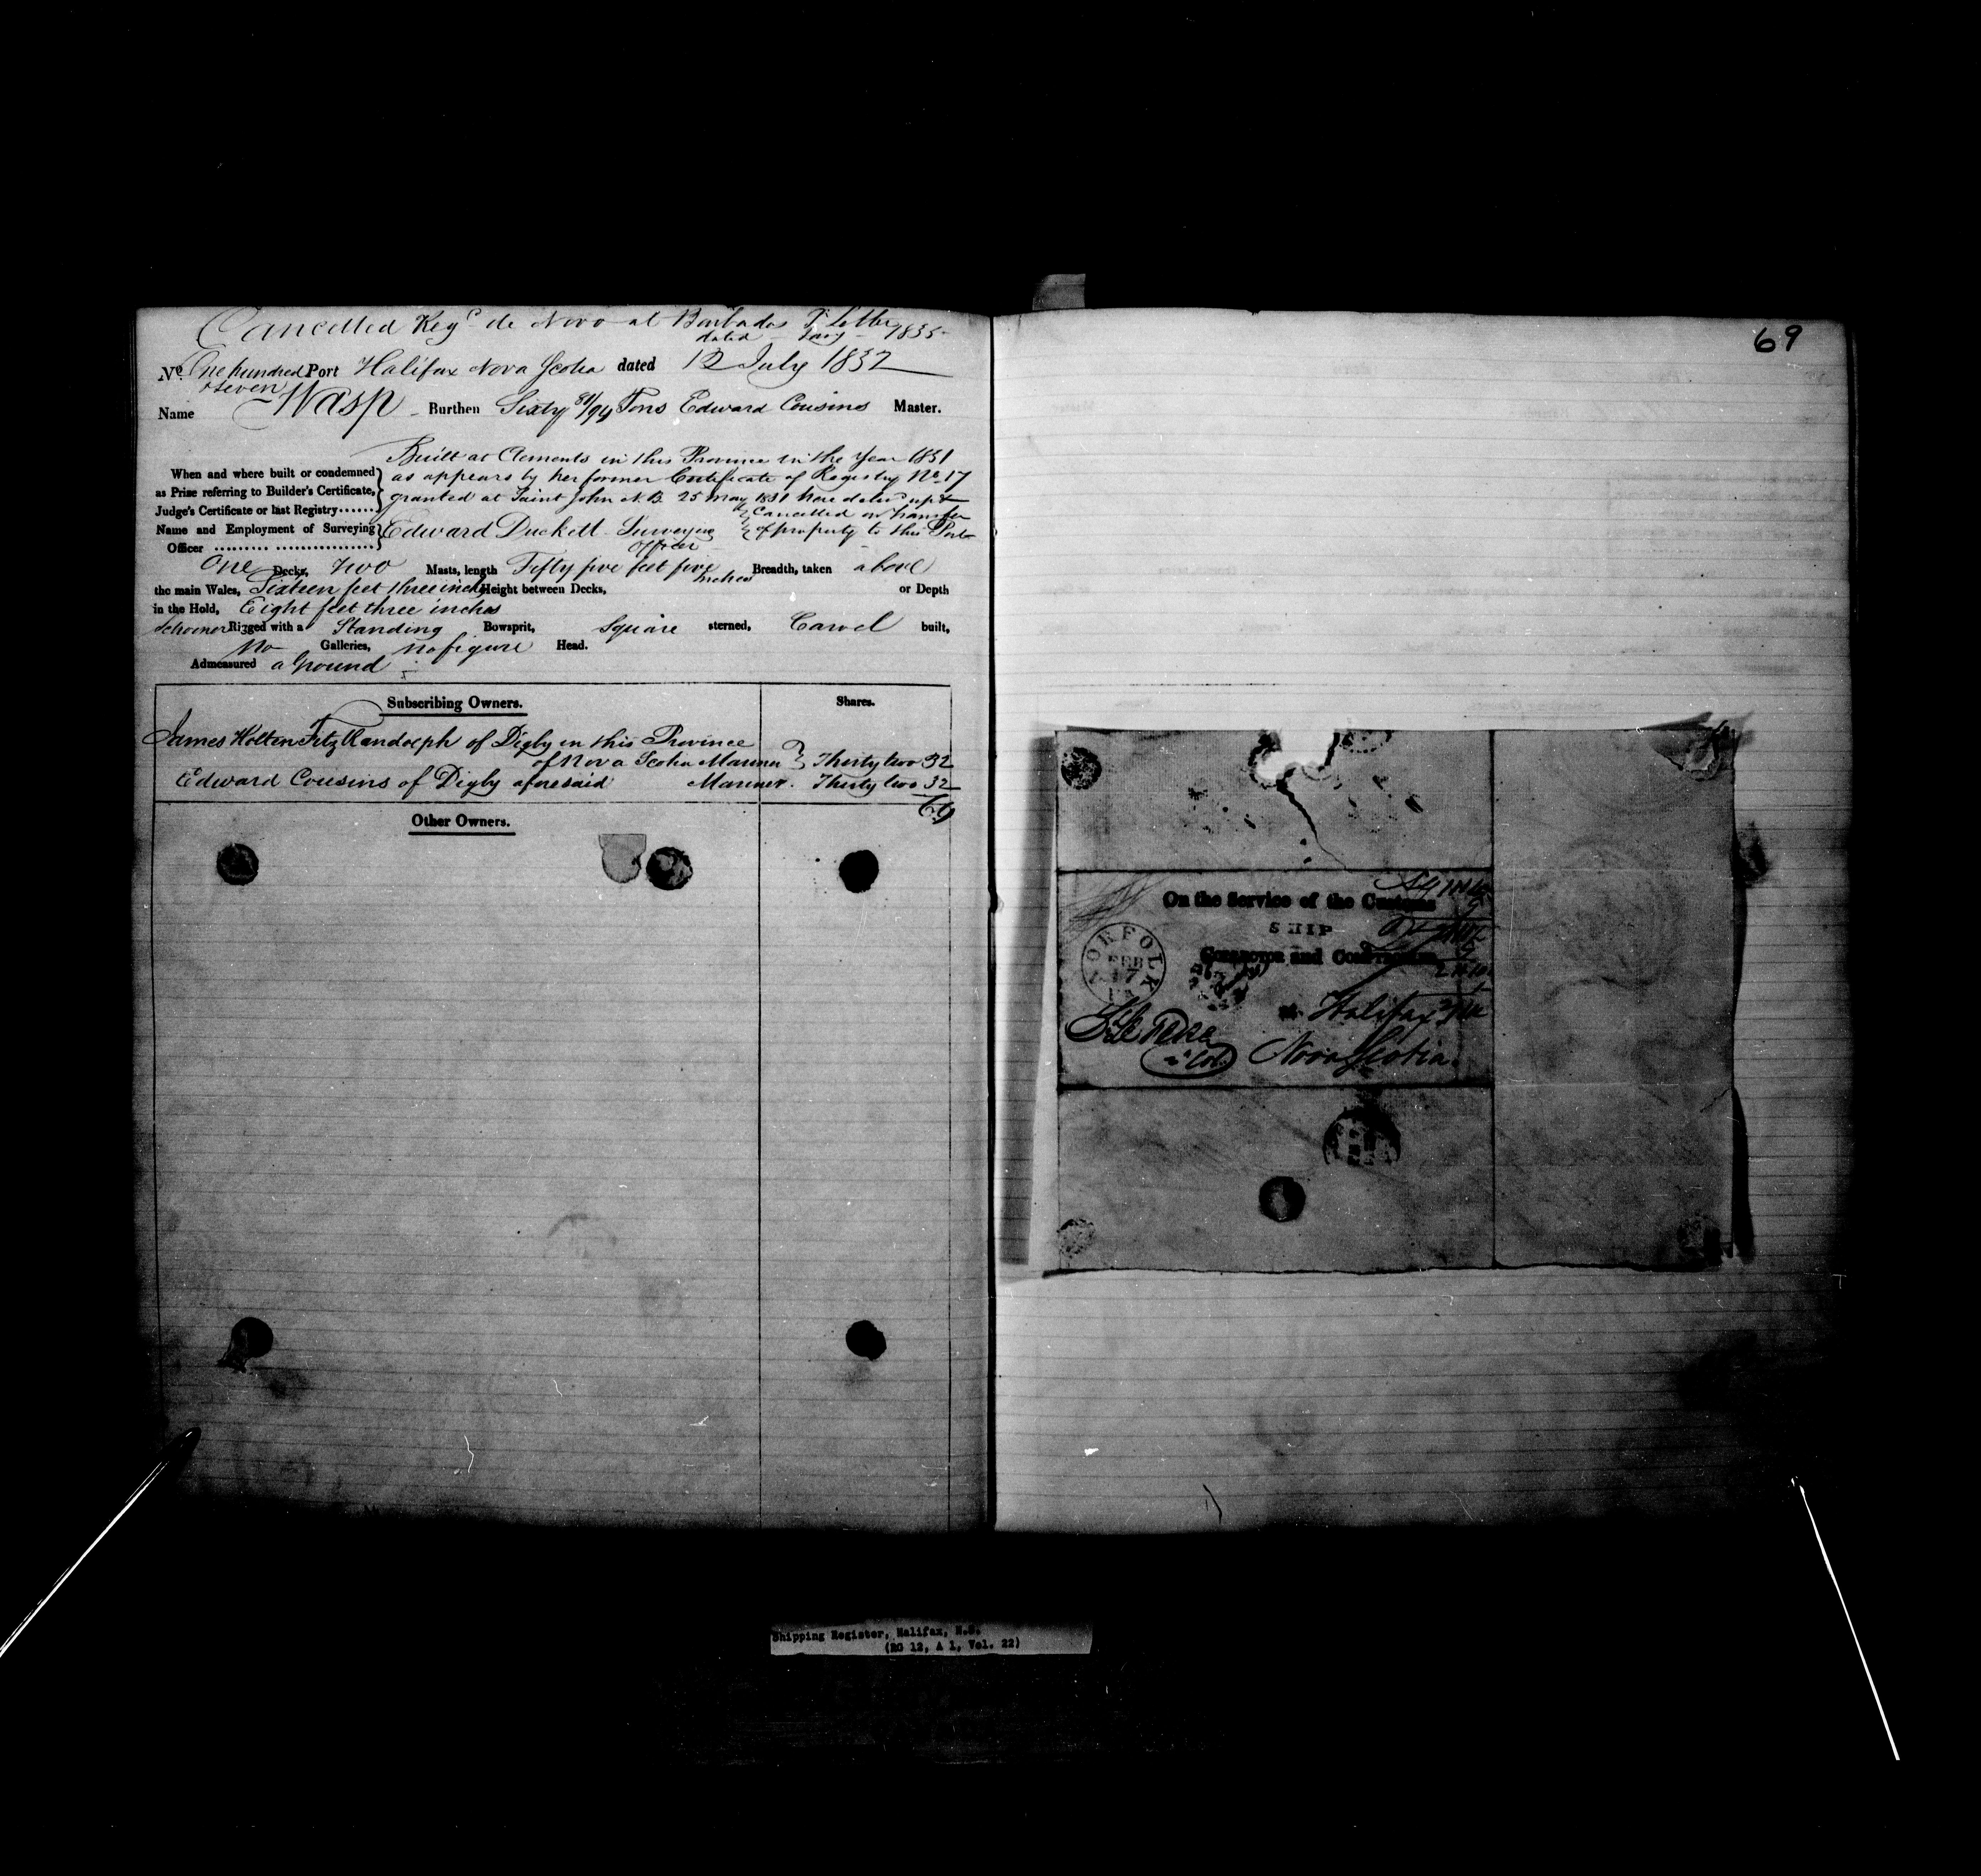 Cancelled Regd de Novo at Barbados Pr Letter
dated Jany 1835
No. One hundred Port Halifax Nova Scotia dated 12 July 1832
& Seven
Name Wasp Burthen Sixty 81/94 Tons Edward Cousins Master.
Built at Clements in this Province in the Year 1831
When and where built or condemned as appears by her former Certificate of Registry No 17
as Prize referring to Builder's Certificate, granted at Saint John N.B. 25 May 1831
Judge's Certificate or last Registry...... Cancelled on transfer
Name and Employment of Surveying Edward Duckett Surveying of property to this Port
Officer .......... .................. Officer
One Decks, Two Masts, length Fifty five feet five inches Breadth, taken above
the main Wales, Sixteen feet three inches Height between Decks, or Depth
in the Hold, Eight feet three inches
Schooner Rigged with a Standing Bowsprit, Square sterned, Carvel built,
No Galleries, no figure Head.
Admeasured a Ground
Subscribing Owners. Shares.
James Holten FitzRandolph of Digby in this Province
of Nova Scotia Mariner } Thirty two 32
Edward Cousins of Digby aforesaid Mariner. Thirty two 32
64
Other Owners.
69
On the Service of the Customs
SHIP
Collector and Comptroller
NORFOLK
FEB
17
VA
at Halifax
Nova Scotia.
Shipping Register, Halifax, N.S.
(RG 12, A 1, Vol. 22)